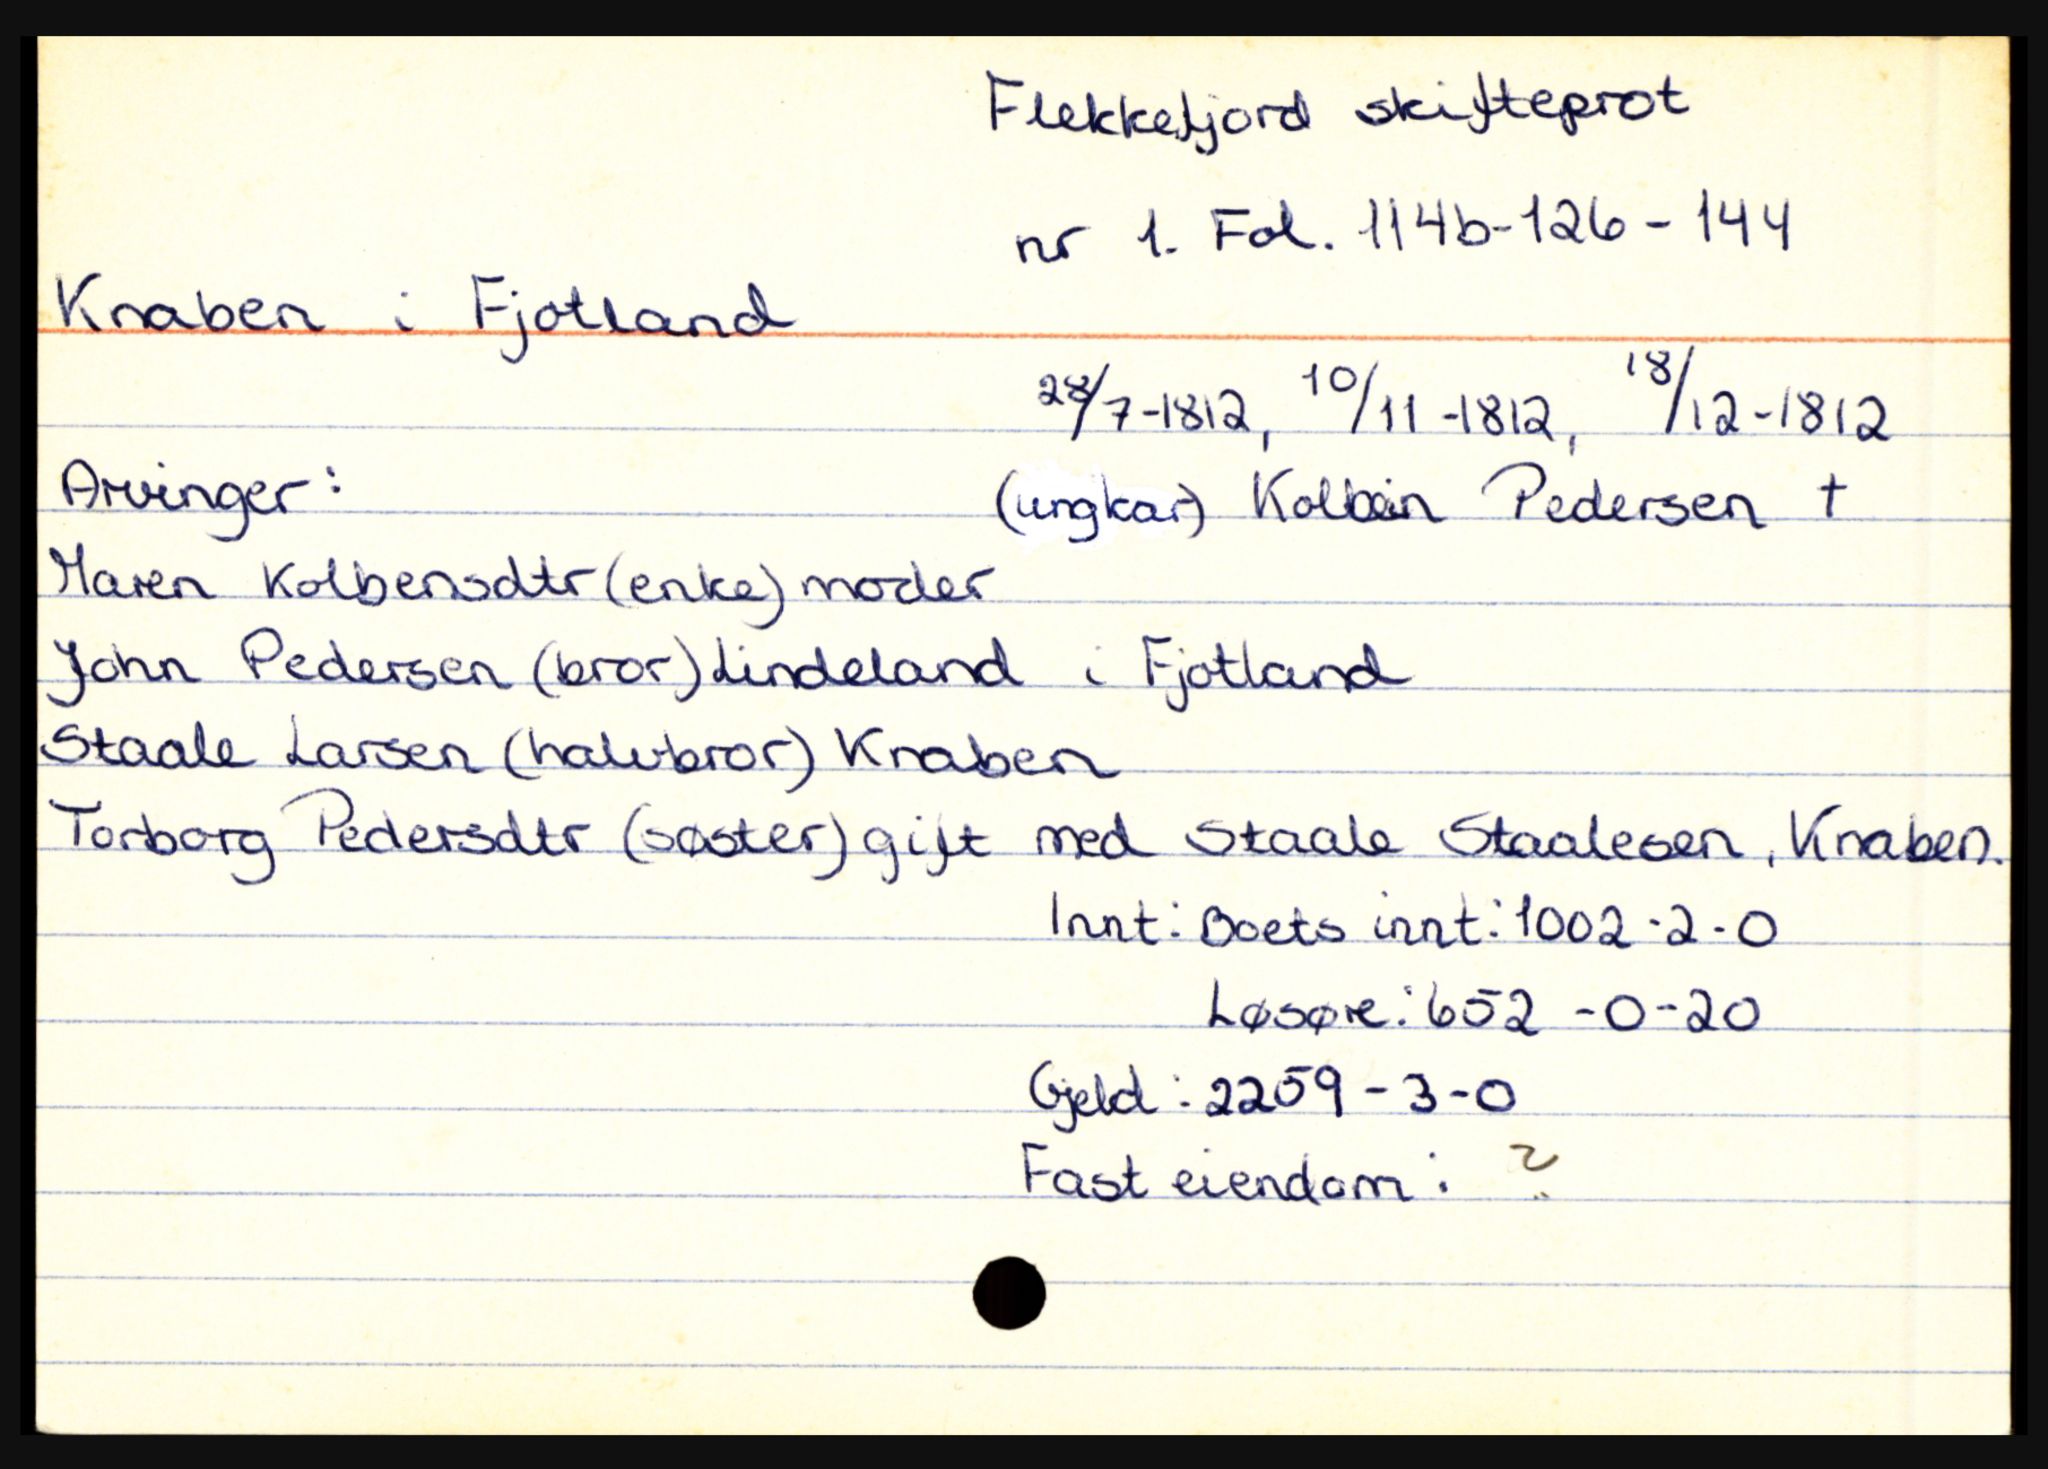 Flekkefjord skifteprot
nr 1. Fol. 114b-126-144
Knaben i Fjotland
28/7-1812, 10/11-1812, 18/12-1812
Arvinger:
(ungkar) Kolbein Pedersen †
Maren Kolbensdtr (enke) moder
John Pedersen (bror) Lindeland i Fjotland
Staale Larsen (halvbror) Knaben
Torborg Pedersdtr (søster) gift med Staale Staalesen, Knaben.
Innt: Boets innt: 1002-2-0
Løsøre: 652-0-20
Gjeld: 2259-3-0
Fast eiendom: ?